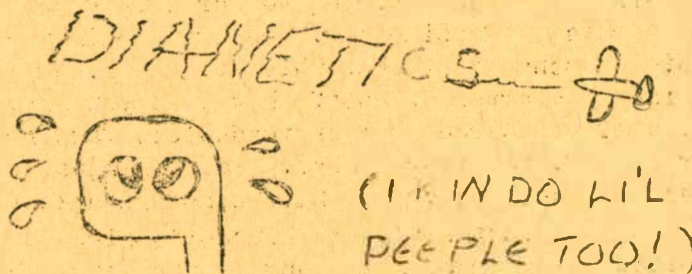 DIANETICS
(I KIN DO LI'L
PEEPLE TOO!)